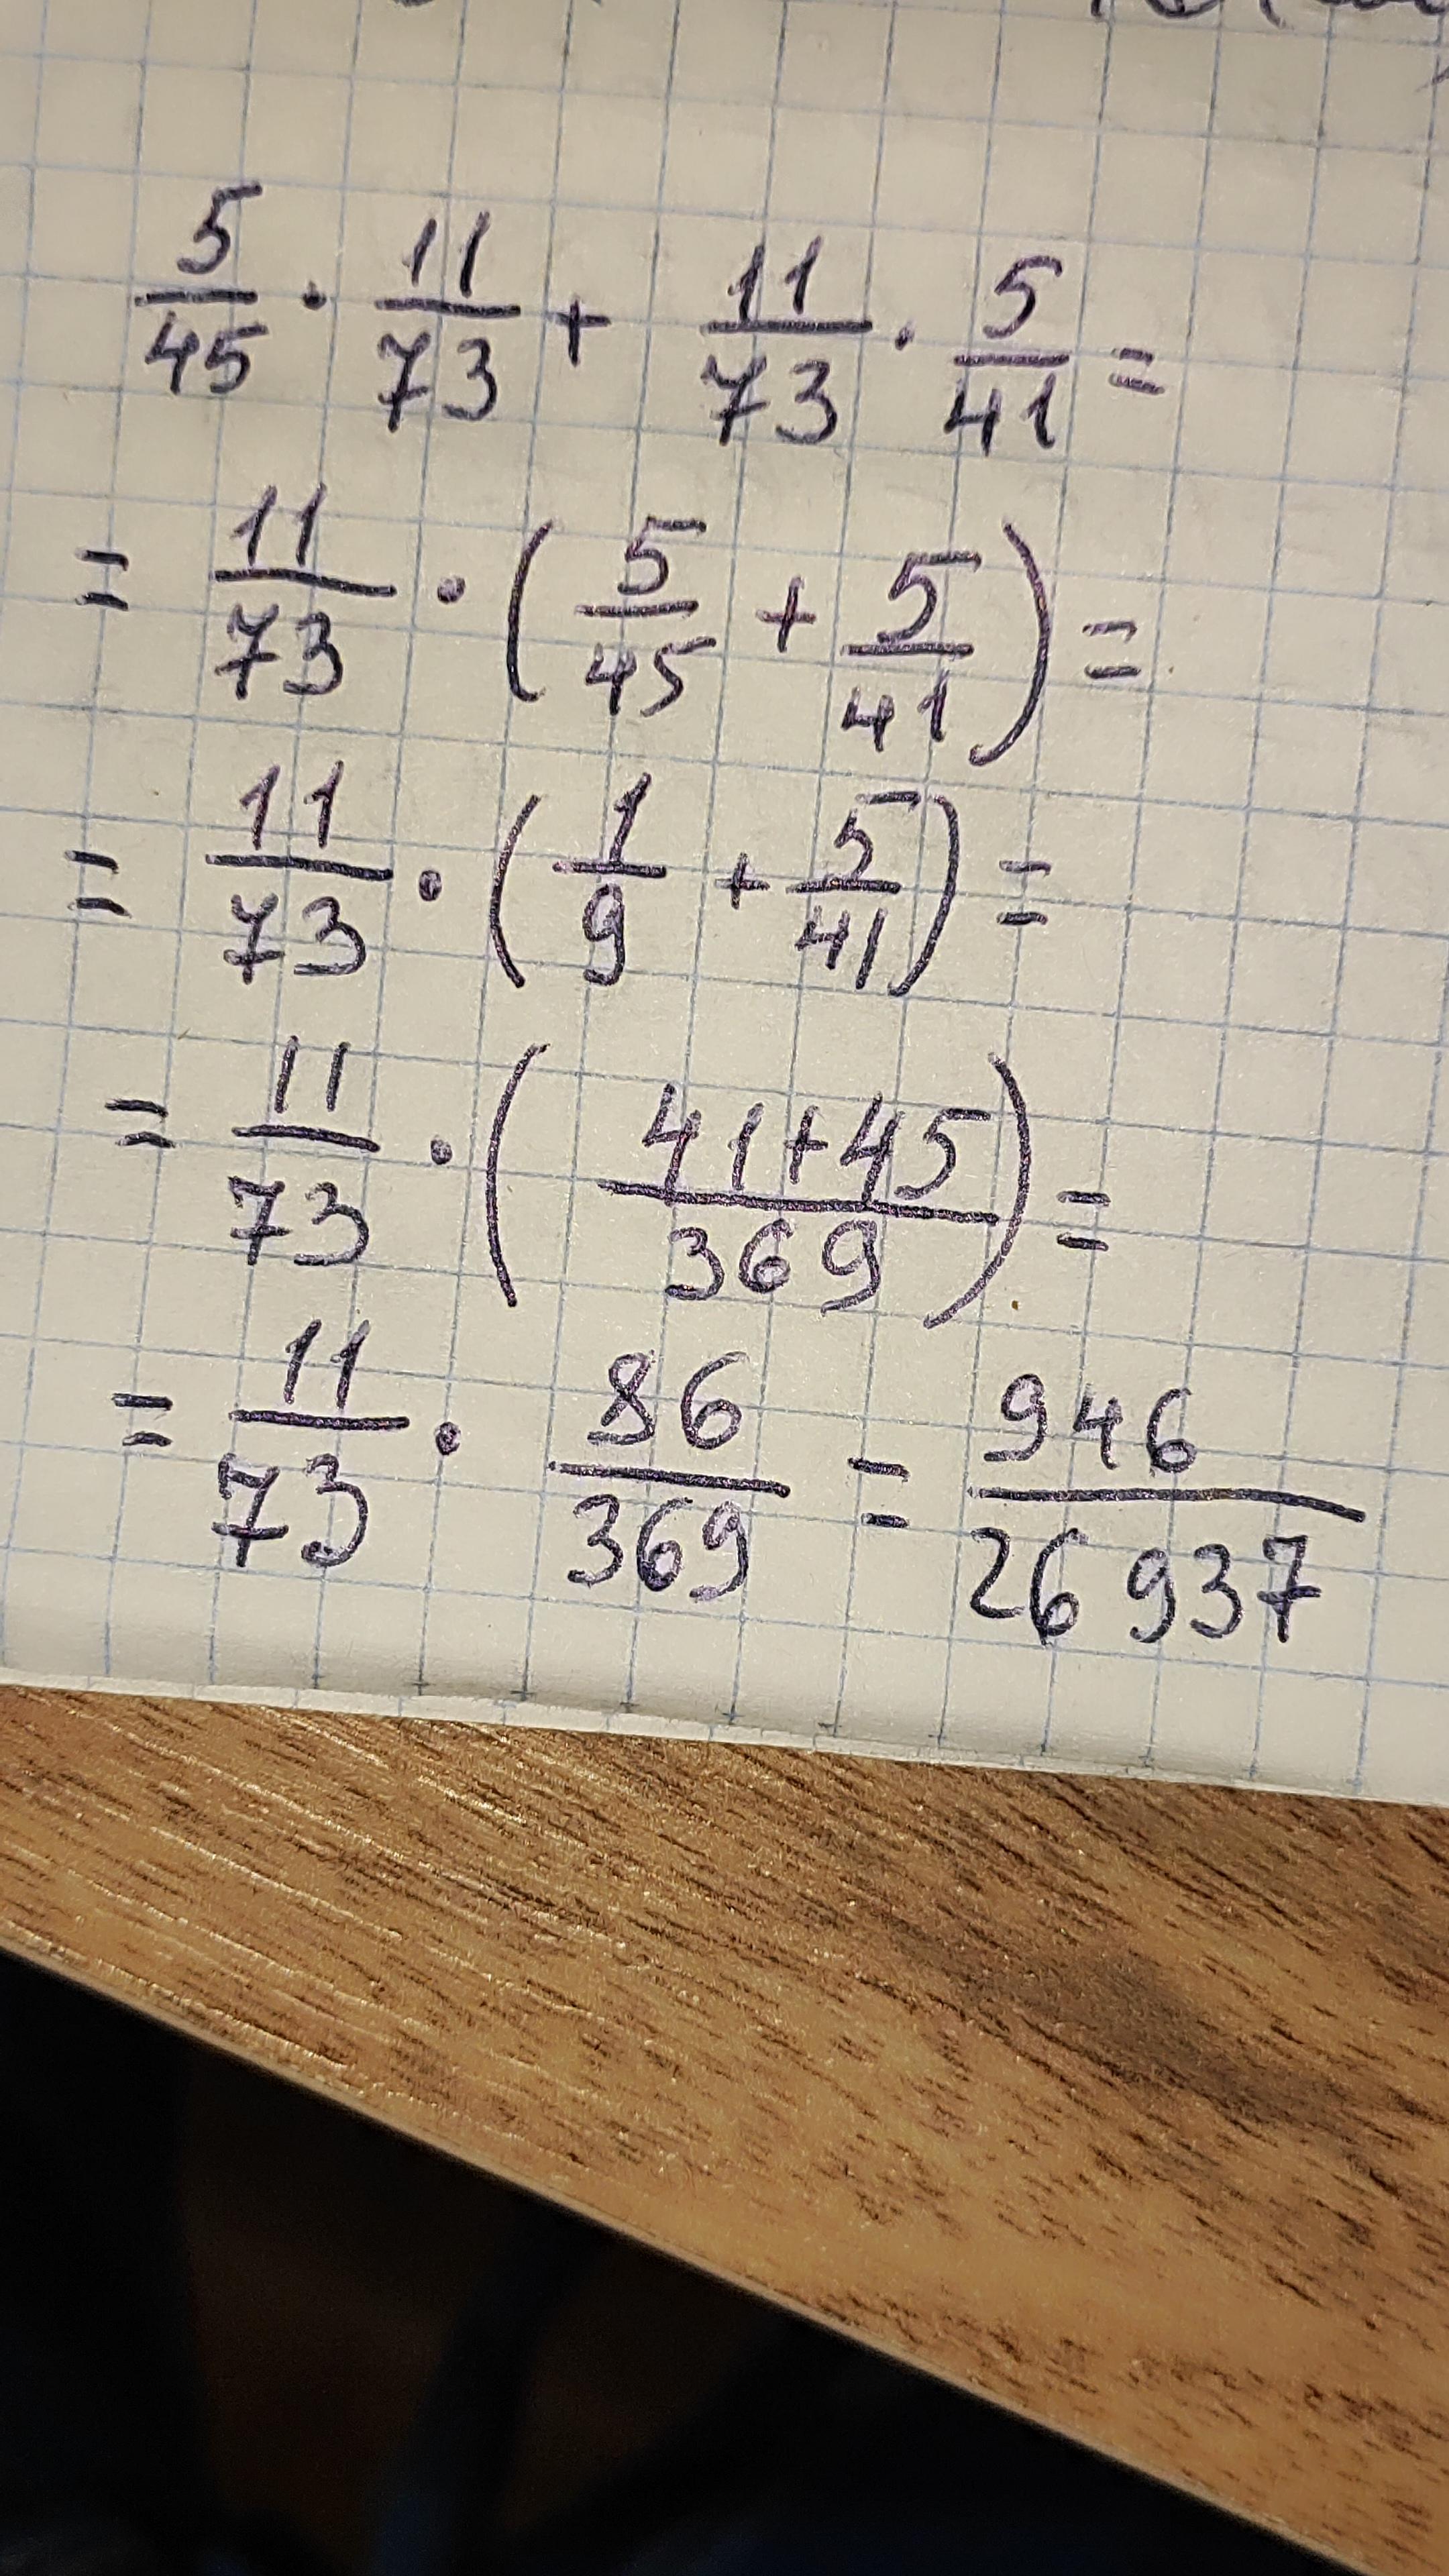 5/45 · 11/73 + 11/73 · 5/41 =
= 11/73 · (5/45 + 5/41) =
= 11/73 · (1/9 + 5/41) =
= 11/73 · ((41+45)/369) =
= 11/73 · 86/369 = 946/26937